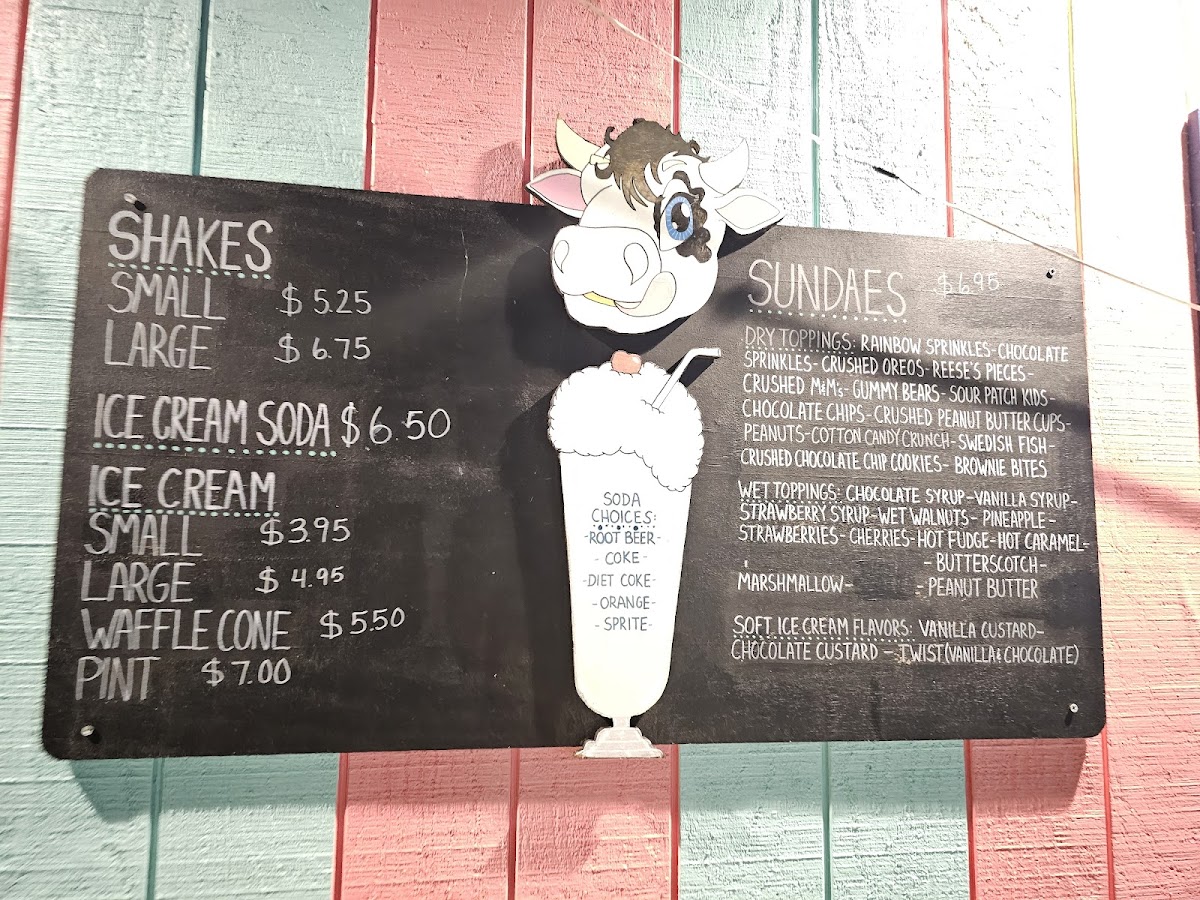 SHAKES
SMALL $5.25
LARGE $6.75
ICE CREAM SODA $6.50
ICE CREAM
SMALL $3.95
LARGE $4.95
WAFFLE CONE $5.50
PINT $7.00
SODA
CHOICES:
-ROOT BEER-
- COKE -
-DIET COKE-
- ORANGE-
- SPRITE-
SUNDAES $6.95
DRY TOPPINGS: RAINBOW SPRINKLES-CHOCOLATE
SPRINKLES-CRUSHED OREOS-REESE'S PIECES-
CRUSHED M&M's-GUMMY BEARS-SOUR PATCH KIDS-
CHOCOLATE CHIPS-CRUSHED PEANUT BUTTER CUPS-
PEANUTS-COTTON CANDY CRUNCH-SWEDISH FISH-
CRUSHED CHOCOLATE CHIP COOKIES- BROWNIE BITES
WET TOPPINGS: CHOCOLATE SYRUP-VANILLA SYRUP-
STRAWBERRY SYRUP-WET WALNUTS- PINEAPPLE-
STRAWBERRIES- CHERRIES-HOT FUDGE-HOT CARAMEL-
- BUTTERSCOTCH-
MARSHMALLOW- - PEANUT BUTTER
SOFT ICE CREAM FLAVORS: VANILLA CUSTARD-
CHOCOLATE CUSTARD - TWIST(VANILLA&CHOCOLATE)